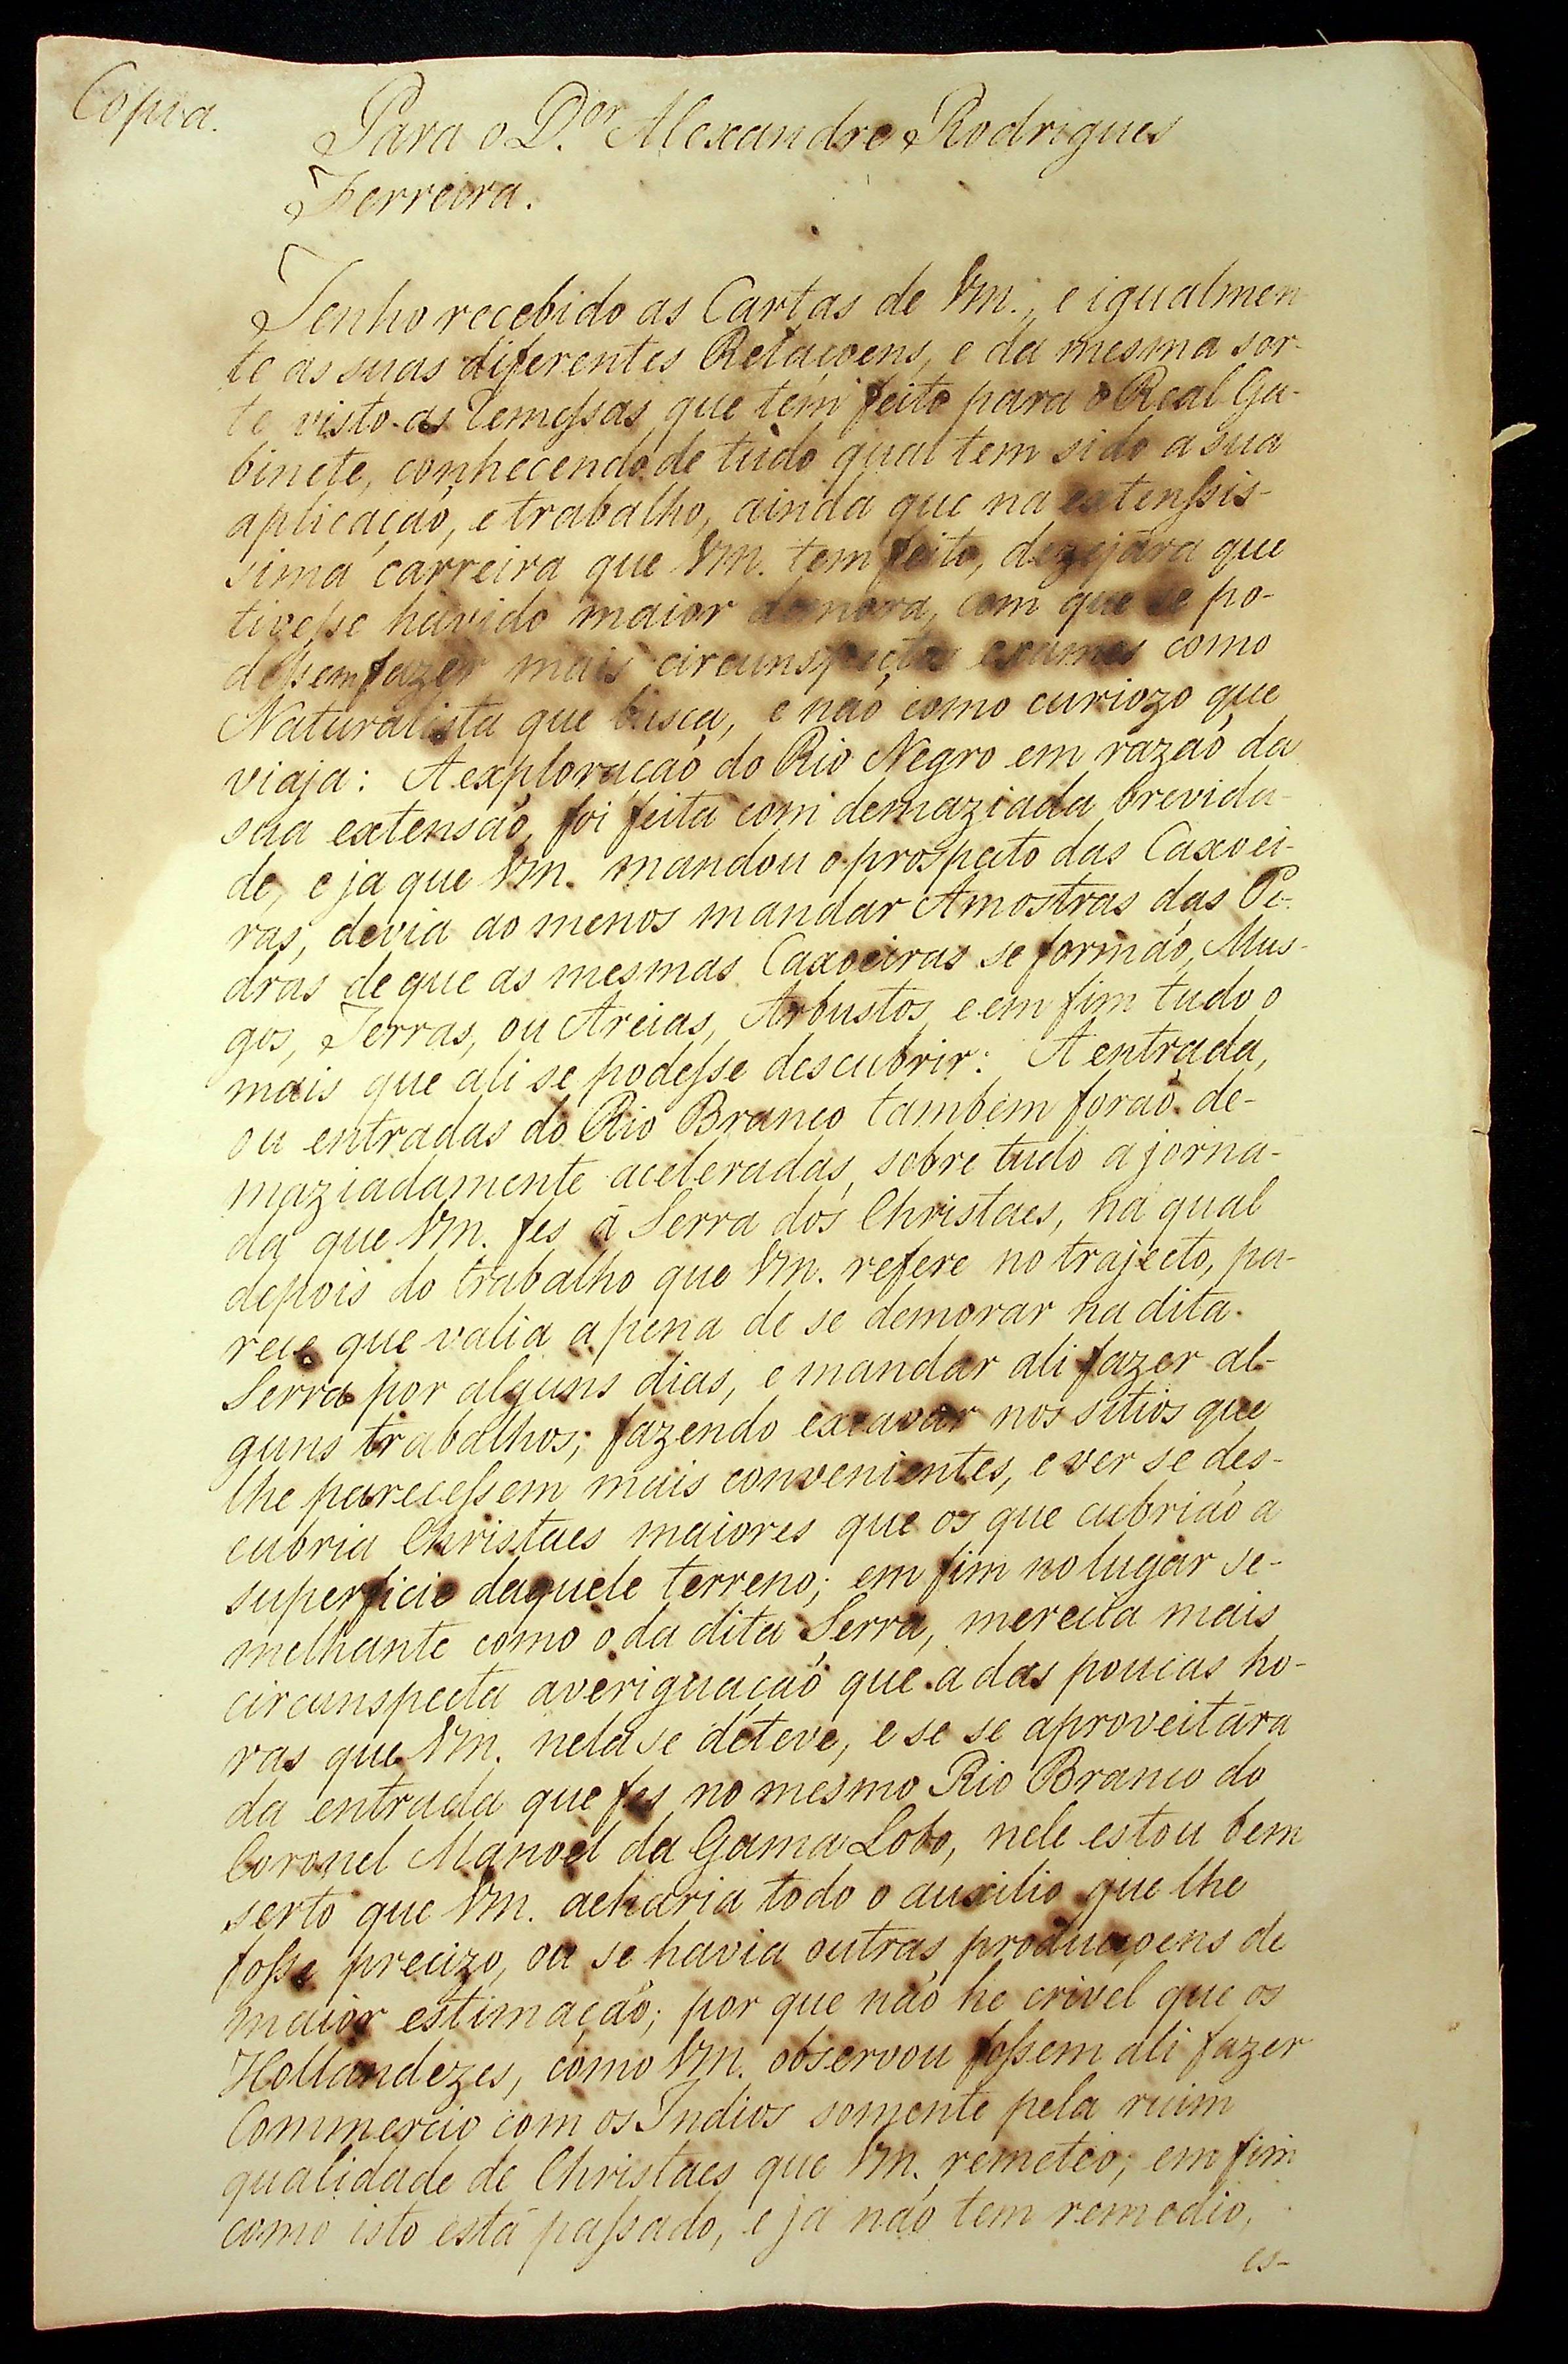 Copia.
Para o D.or Alexandre Rodrigues
Ferreira.
Tenho recebido as Cartas de Vm., e igualmen
te as suas diferentes Relaçoens, e da mesma sor-
te visto as Remessas que tem feito para o Real Ga-
binete, conhecendo de tudo qual tem sido a sua
aplicação, e trabalho, ainda que na extensis-
sima carreira que Vm. tem feito, dezejára que
tivesse havido maior demora, com que se po-
dessem fazer mais circunspectos exames como
Naturalista que busca, e não como curiozo que
viaja: A exploração do Rio Negro em razão da
sua extensão, foi feita com demaziada brevida-
de, e ja que Vm. mandou o prospecto das Caxoei-
ras, devia ao menos mandar Amostras das Pe-
dras de que as mesmas Caxoeiras se formão, Mus-
gos, Terras, ou Areias, Arbustos, e em fim tudo o
mais que ali se podesse descubrir: A entrada,
ou entradas do Rio Branco tambem forão de-
maziadamente aceleradas, sobre tudo a jorna-
da que Vm. fes á Serra dos Christaes, na qual
depois do trabalho que Vm. refere no trajecto, pa-
rece que valia a pena de se demorar na dita
Serra por alguns dias, e mandar ali fazer al-
guns trabalhos; fazendo excavar nos sitios que
lhe parecessem mais convenientes, e ver se des-
cubria Christaes maiores que os que cubrião a
superficie daquele terreno; em fim no lugar se-
melhante como o da dita Serra, merecia mais
circunspecta averiguação que a das poucas ho-
ras que Vm. nela se deteve, e se se aproveitára
da entrada que fes no mesmo Rio Branco do
Coronel Manoel da Gama Lobo, nele estou bem
serto que Vm. acharia todo o auxilio que lhe
fosse precizo, ou se havia outras producçoens de
maior estimação; por que não he crivel que os
Hollandezes, como Vm. observou fossem ali fazer
Commercio com os Indios somente pela ruim
qualidade de Christaes que Vm. remeteo; em fim
como isto está passado, e já não tem remedio,
es-